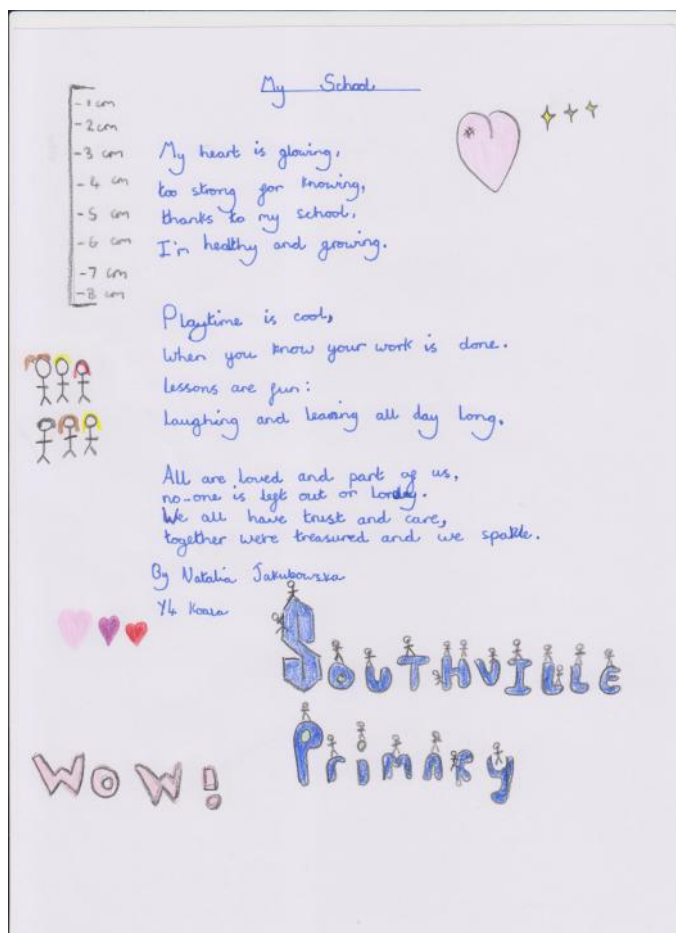 My School
-1 cm
-2cm
-3 cm
-4 cm
-5 cm
-6 cm
-7 cm
-8 cm
My heart is glowing,
too strong for knowing,
thanks to my school,
I'm healthy and growing.
Playtime is cool,
When you know your work is done.
lessons are fun:
laughing and learing all day long.
All are loved and part of us,
no-one is left out or
We all have trust and care,
together were treasured and we
By Natalia Jakubowska
Y4
SOUTHVILLE
PriMARY
WOW!